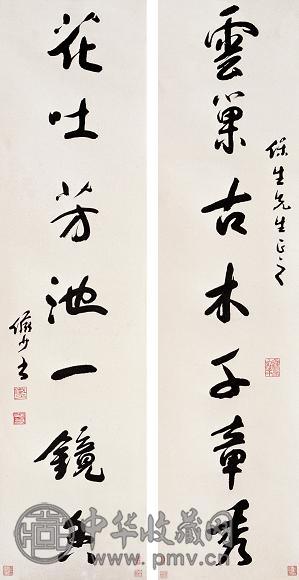 雲巢古木千章秀
保生先生正之
花吐芳池一鏡
儼少
中华收藏网
www.pmv.cn